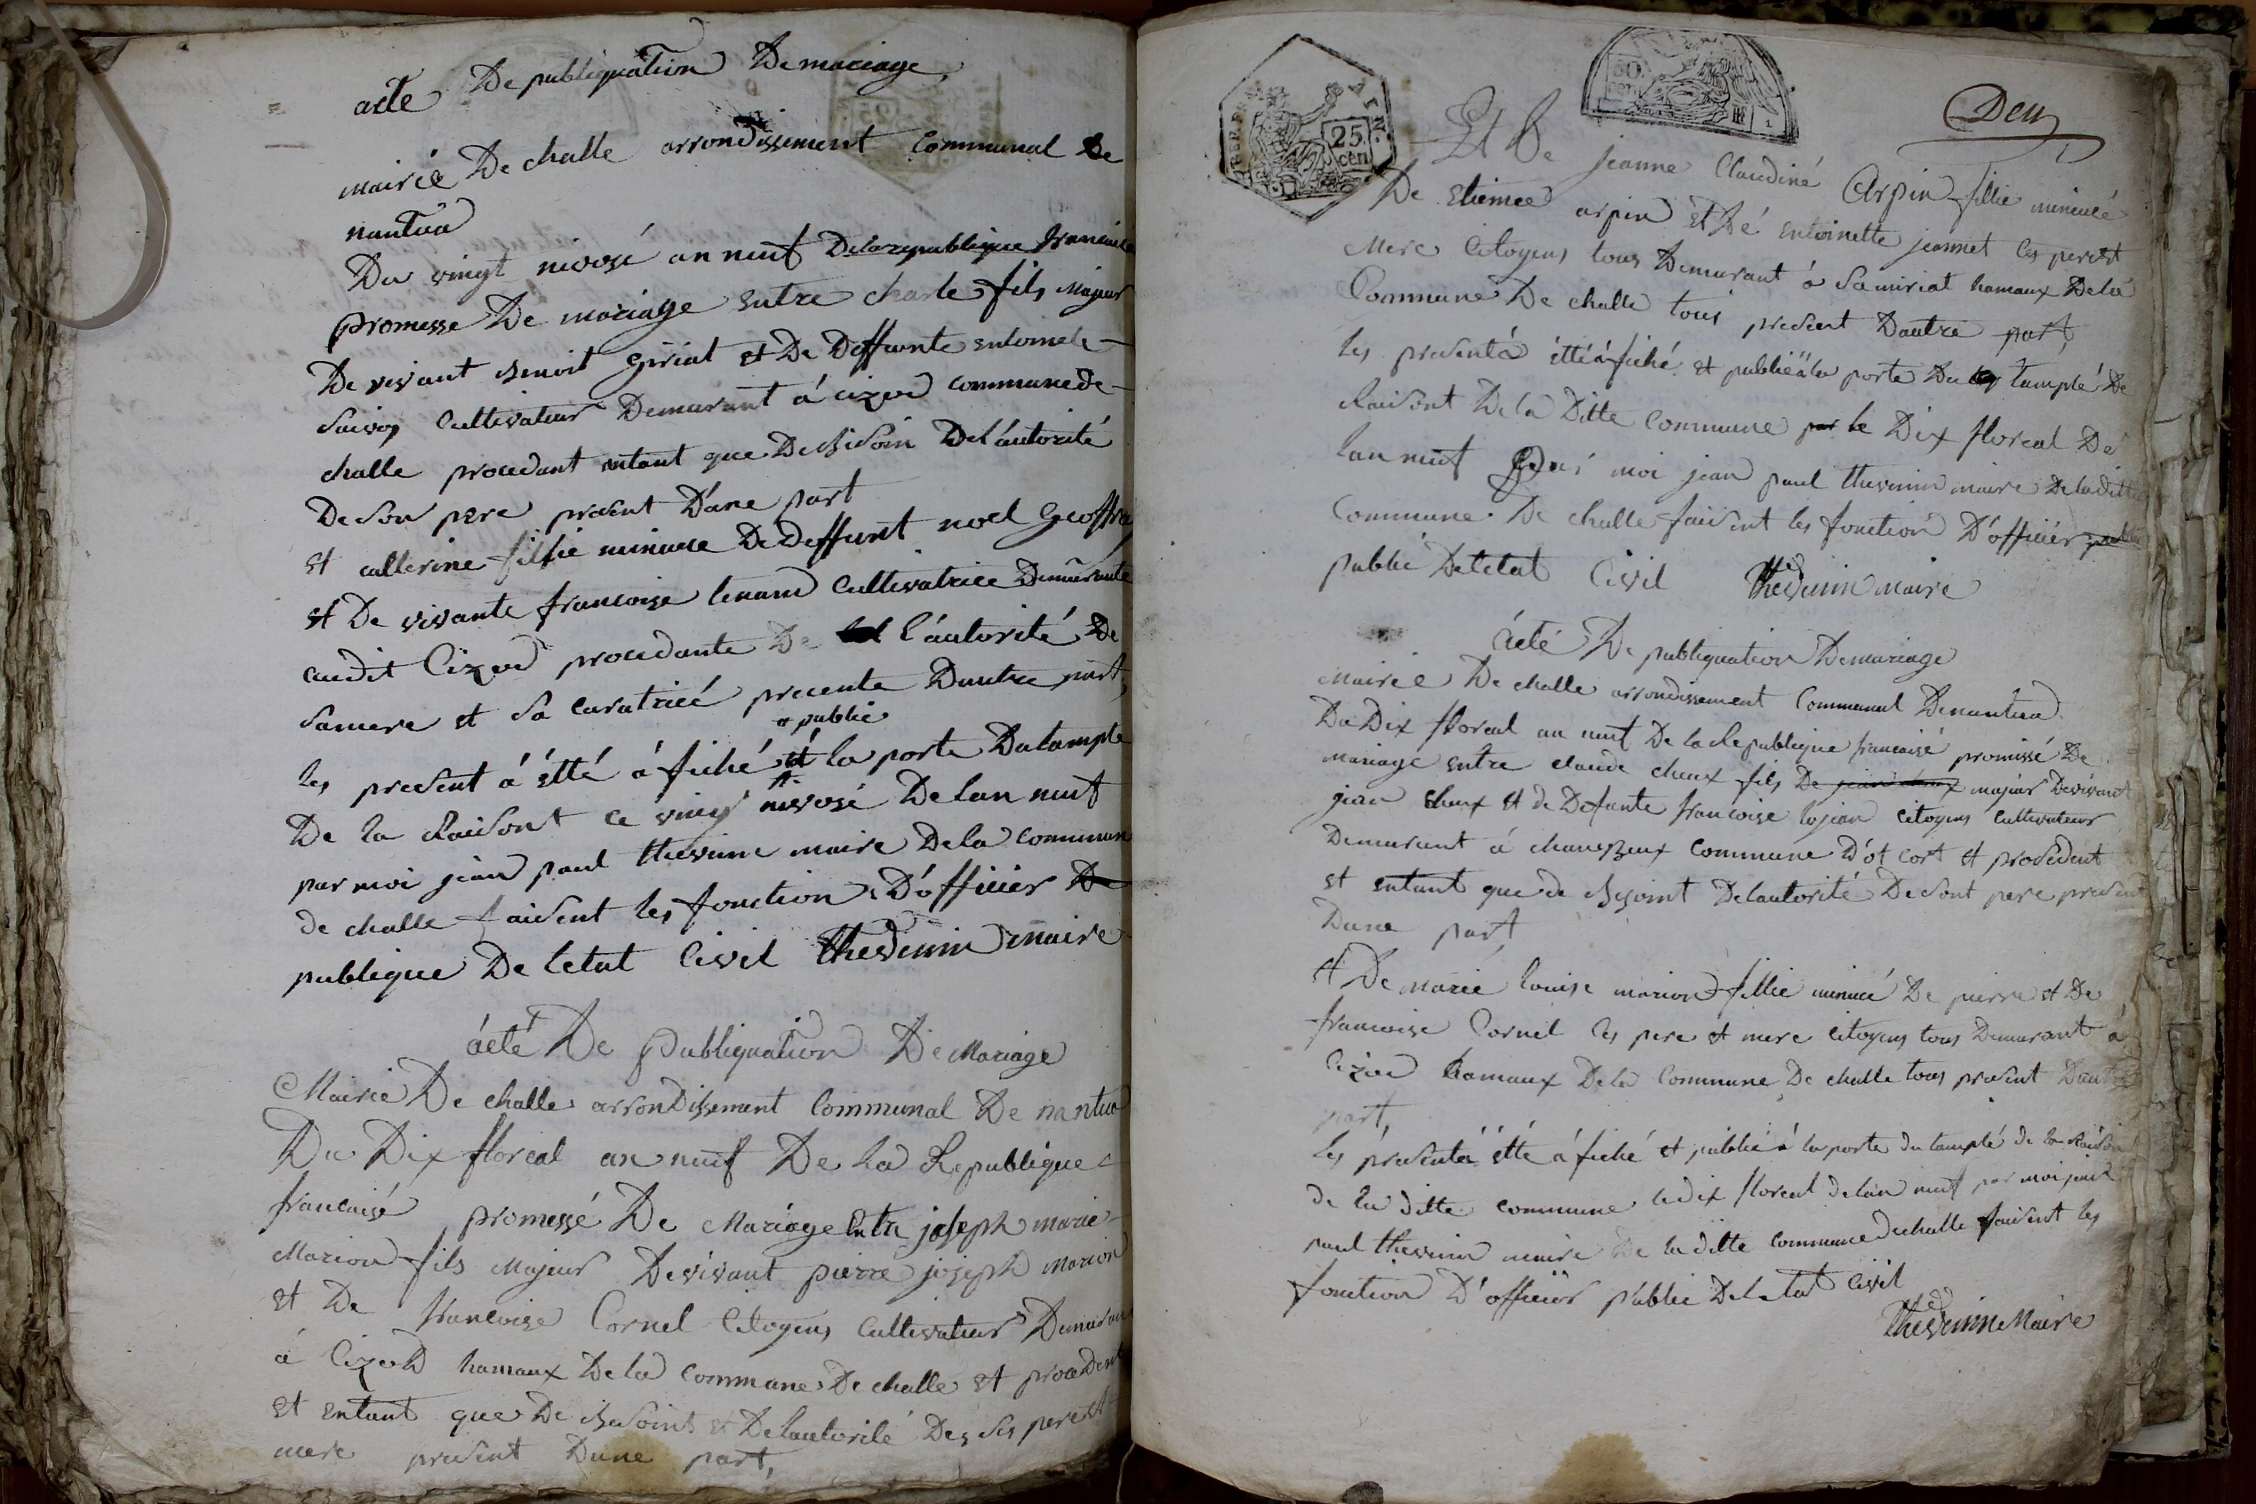 acte De publiquation De mariage
mairie De challe arrondissement communal De
nantua
Du vingt nivosé an neuf De la republique francaise
promesse De mariage entre charle fils majeur
De vivant Benoit giriat et De Deffunte entoinete
cultivateur Demurant á cizod commune de
challe procedant entant que De Besoin De l'áutorité
De son pere present D'une part
et catterine fillie mineure De deffunt noel Geoffra
et De vivante francoise tenand cultivatrice Demurante
audit Cizod procedante De l'áutorité De
sa mere et sa curatricé presente Dautre part,
á publié
les present á étté á fiché á la porte Du tample
De la Raisont ce vingt nivosé De lan neuf
par moi jean paul thevenin maire De la commune
de challe faisent les fonction D'officier De
publique De letat Civil Thevenin maire
ácté De publiquation De Mariage
Mairie De challe arrondissement Communal De nantua
Du Dix floreal an neuf De la Republique
francaisé promessé De Mariage Entre joseph marie
Marion fils Majeur De vivant pierre joseph marion
et De francoise Cornel Citoyens cultivateur Demurant
á CizoD hamaux De la commune De challe et procedent
et entant que De Besoint et De lautorité De ses pere et
mere present Dune part,
25 cen
50
Deu
Et De jeanne Claudiné Arpin fillie mineuré
De etienee arpin et De entoinette jeannet les pere et
Mere Citoyens tous Demurant á Samiriat hamaux De la
Commune De challe tous present Dautre part,
les presentá étté áfiché et publié á la porte Du tamplé De
Raisont De la Ditte commune le Dix floreal De
lan neuf par moi jean paul thevenin maire De la ditte
Commune De challe faisent les fonction D'officiér
publié De letat Civil Thevenin Maire
ácté De publiquation De mariage
Mairie De challe arrondissement Communal De nantua
Du Dix floreal an neuf De la Republique francaisé promissé De
mariage entre claude cheux fils De jean cheux majeur De vivant
jean cheux et de Defunte francoise lojean citoyens cultivateur
Demurant á chaugzeux commune D'ot cort et procedent
et entant que de Besoint De lautorité De sont pere present
Dune part
et De marié louise marion fillie mineuré De pierre et De
francoise Cornel les pere et mere citoyens tous Demurant á
Cizod hamaux De la Commune De challe tous present Dautre
part,
les présentá étté áfiché et publié á la porte du tamplé de la Raisont
de la ditte commune le dix floreal de lan neuf par moi jean
paul thevenin maire De la ditte commune De challe faisent les
fonction D'officiér públié De letat Civil
Thevenin Maire